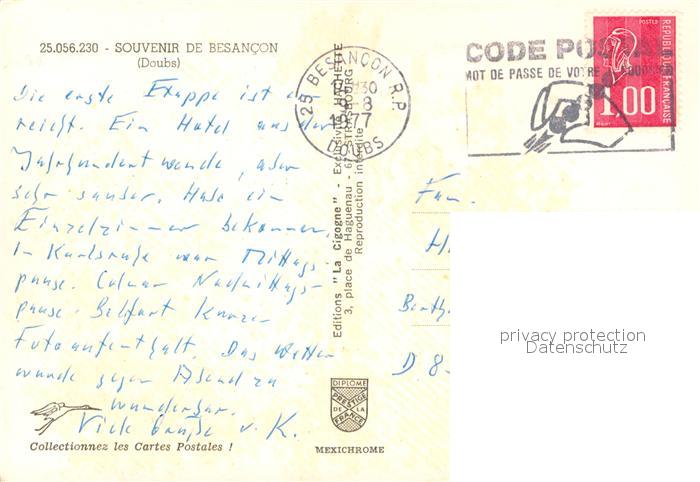 25.056.230 - SOUVENIR DE BESANÇON
(Doubs)
Die erste Etappe ist er-
reicht. Ein Hotel aus der
Jahrhundertwende, aber
sehr sauber. Habe ein
Einzelzimmer bekommen.
In Karlsruhe war Mittags-
pause. Colmar Nachmittags-
pause. Belfort kurzer
Fotoaufenthalt. Das Wetter
wurde gegen Abend zu
wunderbar.
Viele Grüße v. K.
Collectionnez les Cartes Postales !
Editions "La Cigogne" - Exclusivité HACHETTE
3, place de Haguenau - 67 STRASBOURG
Reproduction interdite
DIPLOME
PRESTIGE
DE LA
FRANCE
MEXICHROME
25 BESANCON R.P.
30
-8
1977
DOUBS
CODE POSTAL
MOT DE PASSE DE VOTRE
POSTES
REPUBLIQUE FRANÇAISE
1.00
Fam.
H
Berth
D 8-
privacy protection
Datenschutz